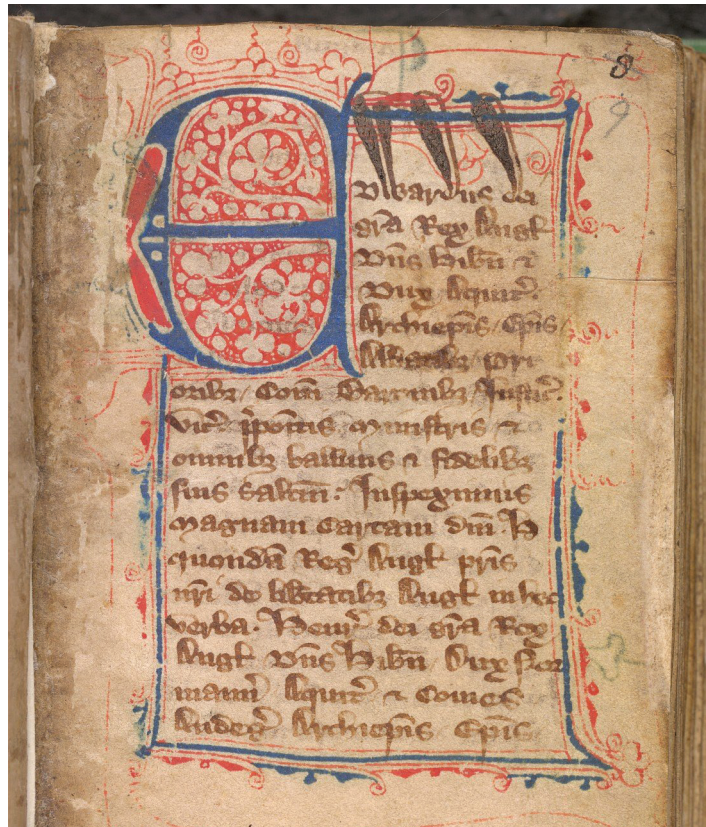 8
9
E
dwardus dei
gr̄a Rex Angl̄
Dn̄s hib̄n ⁊
Dux Aquit̄.
Archiep̄is / Ep̄is /
Abbatibꝫ / Pri
oribꝫ / Com̄ Baronibꝫ / Iustic̄.
vic̄ p̄po͛itis ministris ⁊
omnibꝫ balliuis ⁊ fidelibꝫ
suis Salt̄m: Inspeximus
magnam Cartam dn̄i . H
quondā Reḡ Angl̄ pr̄is
nr̄i de lib̄tatibꝫ Angl̄ in hec
verba . Henr̄ dei gr̄a Rex
Angl̄ Dn̄s Hib̄n Dux Nor
mann̄ Aquit̄ ⁊ Comes
Andeḡ Archiep̄is Ep̄is
22